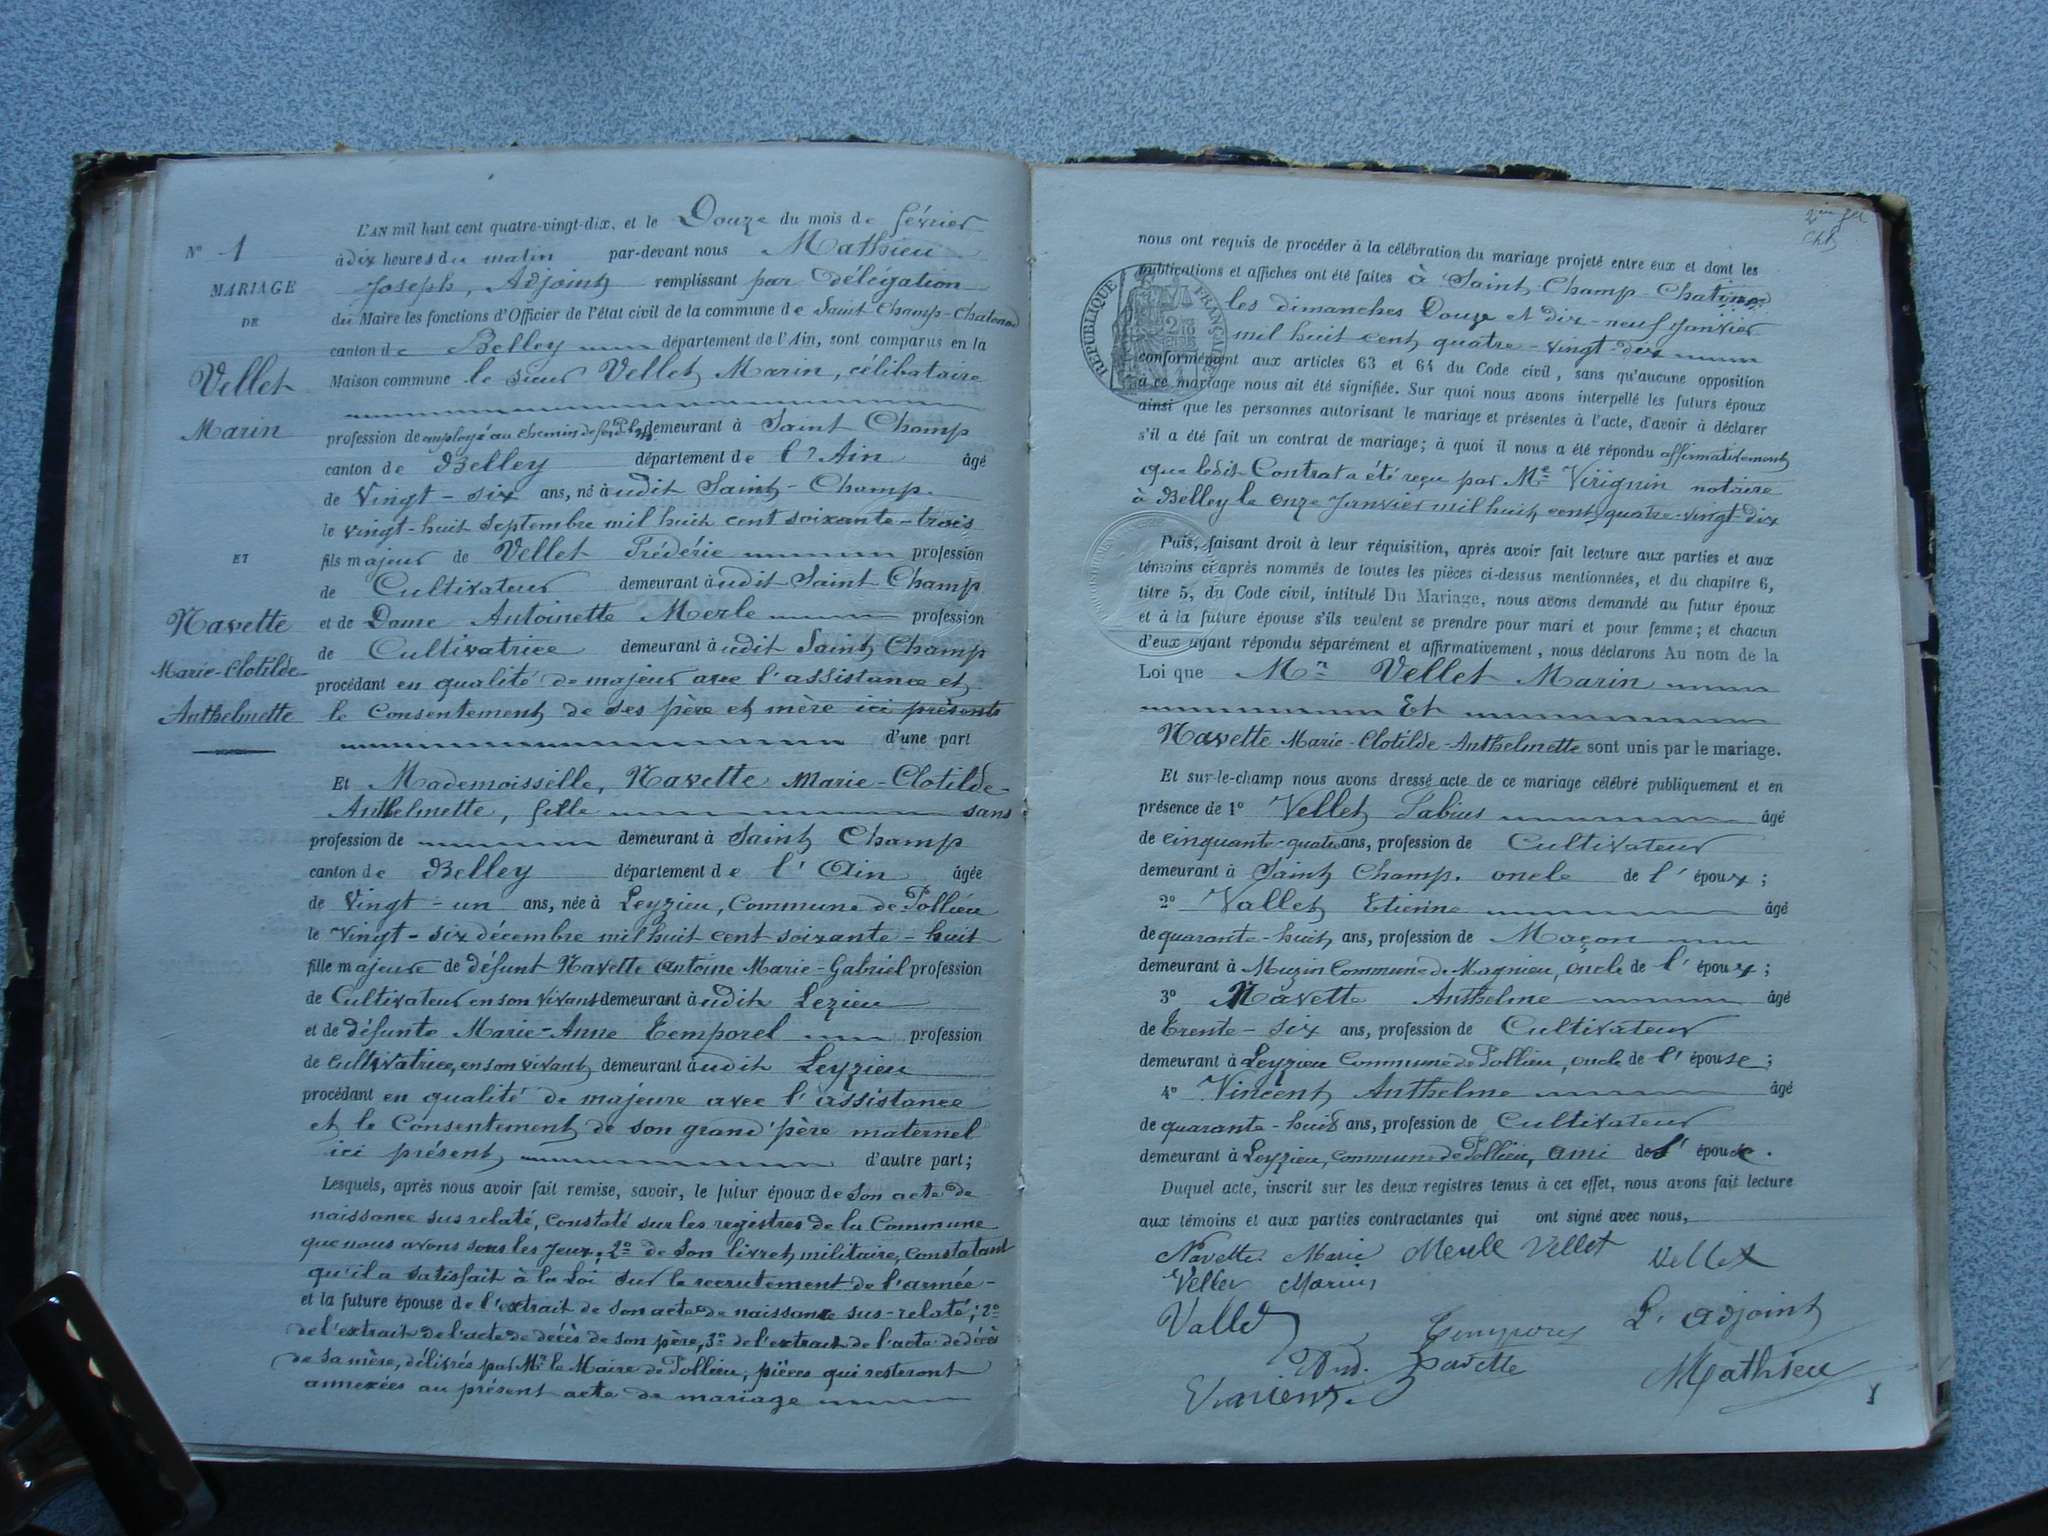 L'AN mil huit cent quatre-vingt-dix, et le Douze du mois de février
N° 1
à dix heures du matin par-devant nous Mathieu
MARIAGE
DE
Joseph, Adjoint remplissant par Délégation
du Maire les fonctions d'Officier de l'état civil de la commune de Saint Champ-Chatonod
canton de Belley département de l'Ain, sont comparus en la
Vellet
Marin
Maison commune le sieur Vellet Marin, célibataire
profession de employé au chemin de fer P.L.M. demeurant à Saint Champ
canton de Belley département de l'Ain âgé
de Vingt-six ans, né à udit Saint-Champ.
le vingt-huit Septembre mil huit cent soixante-trois
ET
fils majeur de Vellet Frédéric profession
de Cultivateur demeurant à udit Saint Champ
Navette
Marie-Clotilde-
Anthelmette
et de Dame Antoinette Merle profession
de Cultivatrice demeurant à udit Saint Champ
procédant en qualité de majeur avec l'assistance et
le Consentement de ses père et mère ici présents
d'une part
Et Mademoisselle, Navette Marie-Clotilde-
Anthelmette, fille sans
profession de demeurant à Saint Champ
canton de Belley département de l'Ain âgée
de Vingt-un ans, née à Leyzieu, Commune de Pollieu
le Vingt-six décembre mil huit cent soixante-huit
fille majeure de défunt Navette Antoine Marie-Gabriel profession
de Cultivateur en son vivant demeurant à udit Lezieu
et de défunte Marie-Anne Temporel profession
de cultivatrice, en son vivant demeurant à udit Leyzieu
procédant en qualité de majeure avec l'assistance
et le Consentement de son grand'père maternel
ici présent, d'autre part;
Lesquels, après nous avoir fait remise, savoir, le futur époux de son acte de
naissance sus relaté, constaté sur les registres de la Commune
que nous avons sous les yeux, 2° de son livret militaire, constatant
qu'il a satisfait à la Loi sur le recrutement de l'armée-
et la future épouse de l'extrait de son acte de naissance sus-relaté; 2°
de l'extrait de l'acte de décès de son père, 3° de l'extrait de l'acte de décès
de sa mère, délivrés par Mr le Maire de Pollieu, pièces qui resteront
annexées au présent acte de mariage
nous ont requis de procéder à la célébration du mariage projeté entre eux et dont les
publications et affiches ont été faites à Saint Champ-Chatonod
les dimanches Douze et dix-neuf Janvier
mil huit cent quatre-vingt-dix
RÉPUBLIQUE FRANÇAISE
conformément aux articles 63 et 64 du Code civil, sans qu'aucune opposition
à ce mariage nous ait été signifiée. Sur quoi nous avons interpellé les futurs époux
ainsi que les personnes autorisant le mariage et présentes à l'acte, d'avoir à déclarer
s'il a été fait un contrat de mariage; à quoi il nous a été répondu affirmativement
que ledit Contrat a été reçu par Me Virignin notaire
à Belley le onze Janvier mil huit cent quatre-vingt-dix
Puis, faisant droit à leur réquisition, après avoir fait lecture aux parties et aux
témoins ci-après nommés de toutes les pièces ci-dessus mentionnées, et du chapitre 6,
titre 5, du Code civil, intitulé Du Mariage, nous avons demandé au futur époux
et à la future épouse s'ils veulent se prendre pour mari et pour femme; et chacun
d'eux ayant répondu séparément et affirmativement, nous déclarons Au nom de la
Loi que Mr Vellet Marin
Et
Navette Marie-Clotilde-Anthelmette sont unis par le mariage.
Et sur-le-champ nous avons dressé acte de ce mariage célébré publiquement et en
présence de 1° Vellet Fabius âgé
de cinquante-quatre ans, profession de Cultivateur
demeurant à Saint Champ. oncle de l'époux;
2° Vallet Etienne âgé
de quarante-huit ans, profession de Maçon
demeurant à Muzin Commune de Magnieu, oncle de l'époux;
3° Navette Anthelme âgé
de Trente-six ans, profession de Cultivateur
demeurant à Leyzieu Commune de Pollieu, oncle de l'épouse;
4° Vincent Anthelme âgé
de quarante-huit ans, profession de Cultivateur
demeurant à Leyzieu, commune de Pollieu, ami de l'épouse.
Duquel acte, inscrit sur les deux registres tenus à cet effet, nous avons fait lecture
aux témoins et aux parties contractantes qui ont signé avec nous,
Navette Marie Merle Vellet Vellet
Vellet Marin
Vallet L'adjoint
Navette Mathieu